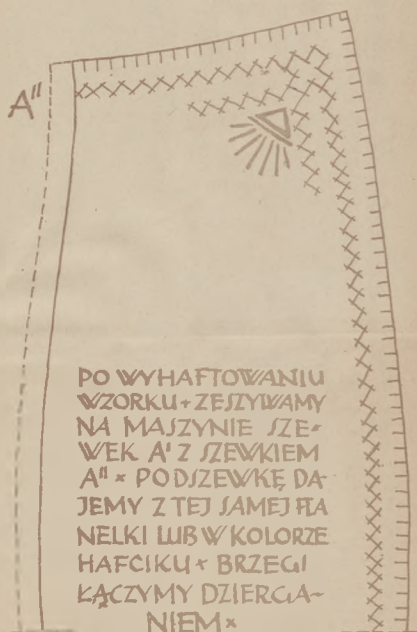 A"
PO WYHAFTOWANIU
WZORKU + ZESZYWAMY
NA MASZYNIE SZE-
WEK A' Z SZEWKIEM
A" × PODSZEWKĘ DA-
JEMY Z TEJ SAMEJ FLA
NELKI LUB W KOLORZE
HAFCIKU + BRZEGI
ŁĄCZYMY DZIERGA-
NIEM ×